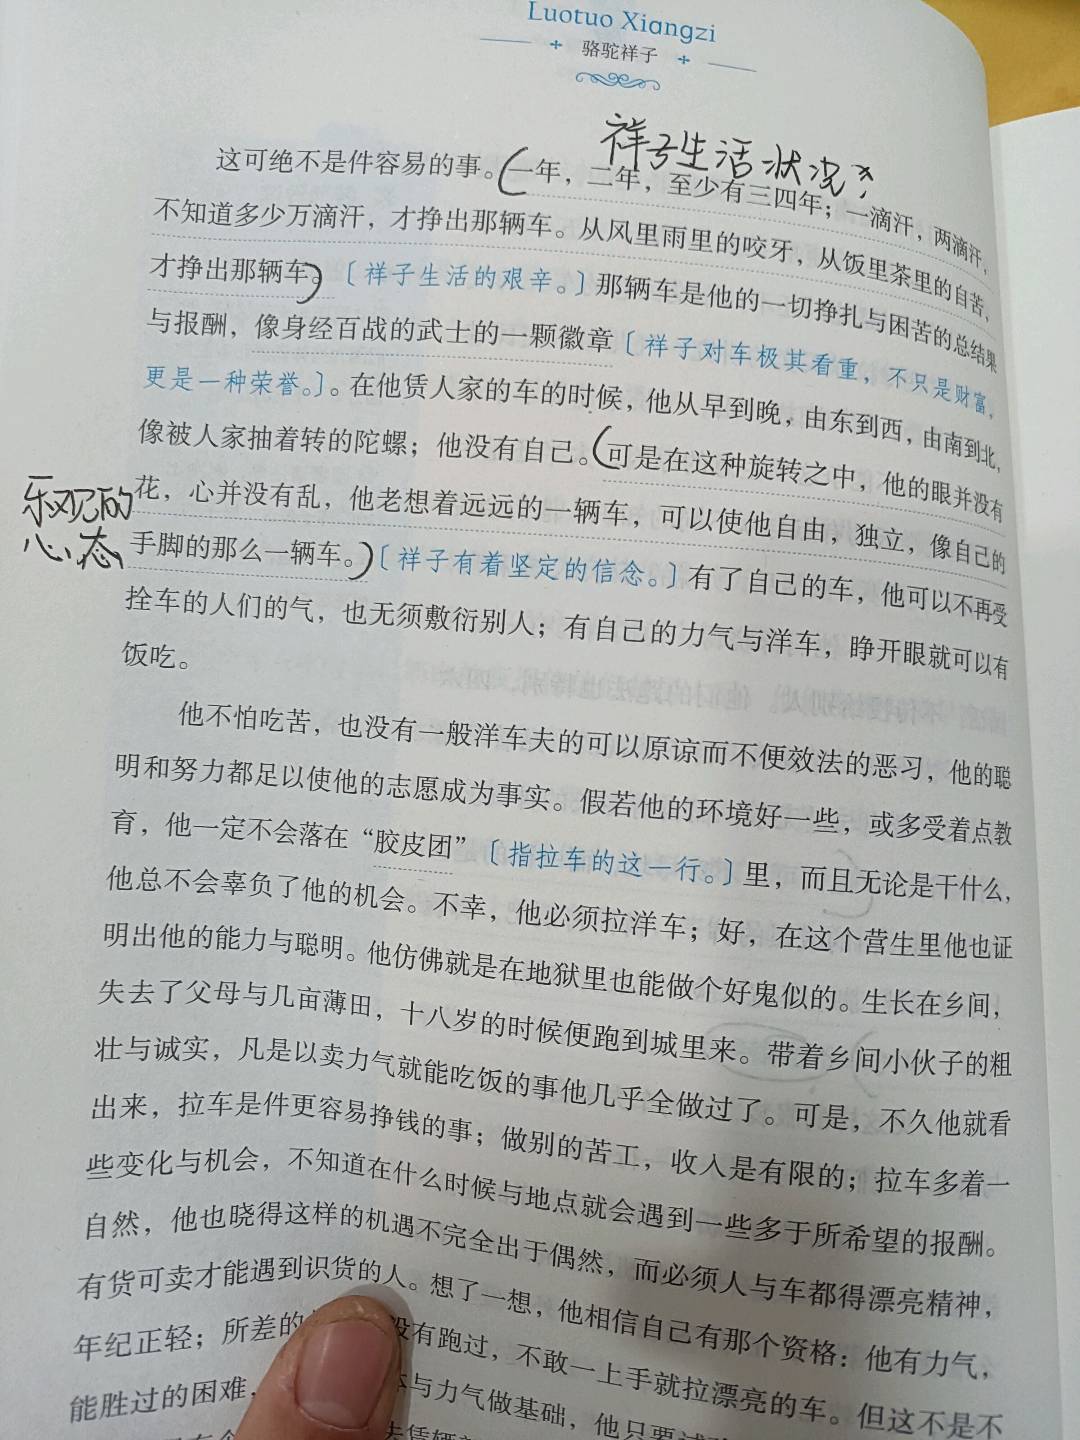 Luotuo Xiangzi
骆驼祥子
祥子生活状况
这可绝不是件容易的事。一年，二年，至少有三四年；一滴汗，两滴汗，
不知道多少万滴汗，才挣出那辆车。从风里雨里的咬牙，从饭里茶里的自苦，
才挣出那辆车。〔祥子生活的艰辛。〕那辆车是他的一切挣扎与困苦的总结果
与报酬，像身经百战的武士的一颗徽章〔祥子对车极其看重，不只是财富，
更是一种荣誉。〕。在他赁人家的车的时候，他从早到晚，由东到西，由南到北，
像被人家抽着转的陀螺；他没有自己。可是在这种旋转之中，他的眼并没有
花，心并没有乱，他老想着远远的一辆车，可以使他自由，独立，像自己的
手脚的那么一辆车。〔祥子有着坚定的信念。〕有了自己的车，他可以不再受
乐观的
心态
拴车的人们的气，也无须敷衍别人；有自己的力气与洋车，睁开眼就可以有
饭吃。
他不怕吃苦，也没有一般洋车夫的可以原谅而不便效法的恶习，他的聪
明和努力都足以使他的志愿成为事实。假若他的环境好一些，或多受着点教
育，他一定不会落在“胶皮团”〔指拉车的这一行。〕里，而且无论是干什么，
他总不会辜负了他的机会。不幸，他必须拉洋车；好，在这个营生里他也证
明出他的能力与聪明。他仿佛就是在地狱里也能做个好鬼似的。生长在乡间，
失去了父母与几亩薄田，十八岁的时候便跑到城里来。带着乡间小伙子的粗
壮与诚实，凡是以卖力气就能吃饭的事他几乎全做过了。可是，不久他就看
出来，拉车是件更容易挣钱的事；做别的苦工，收入是有限的；拉车多着一
些变化与机会，不知道在什么时候与地点就会遇到一些多于所希望的报酬。
自然，他也晓得这样的机遇不完全出于偶然，而必须人与车都得漂亮精神，
有货可卖才能遇到识货的人。想了一想，他相信自己有那个资格：他有力气，
年纪正轻；所差的 没有跑过，不敢一上手就拉漂亮的车。但这不是不
能胜过的困难， 体与力气做基础，他只要